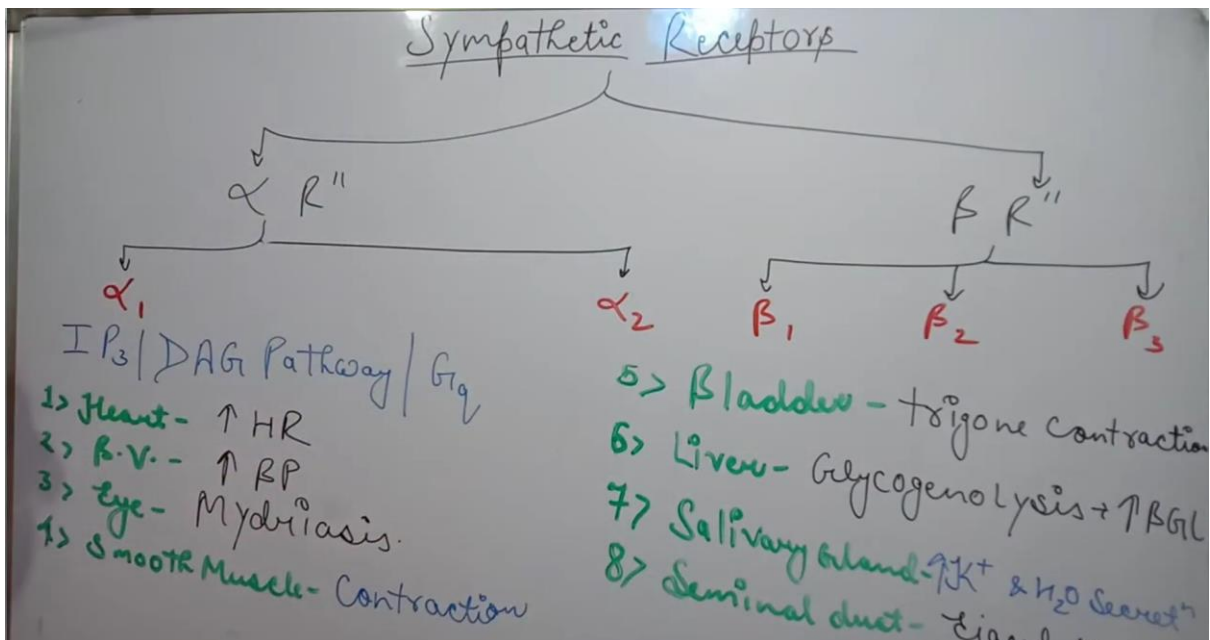 Sympathetic Receptors
α R"
β R"
α1
α2
β1
β2
β3
IP3/DAG Pathway/Gq
1> Heart- ↑ HR
2> B.V.- ↑ BP
3> Eye- Mydriasis.
4> Smooth Muscle- Contraction
5> Bladder - trigone contraction
6> Liver- Glycogenolysis → ↑ BGL
7> Salivary Gland- ↑K+ & H2O Secretn
8> Seminal duct-